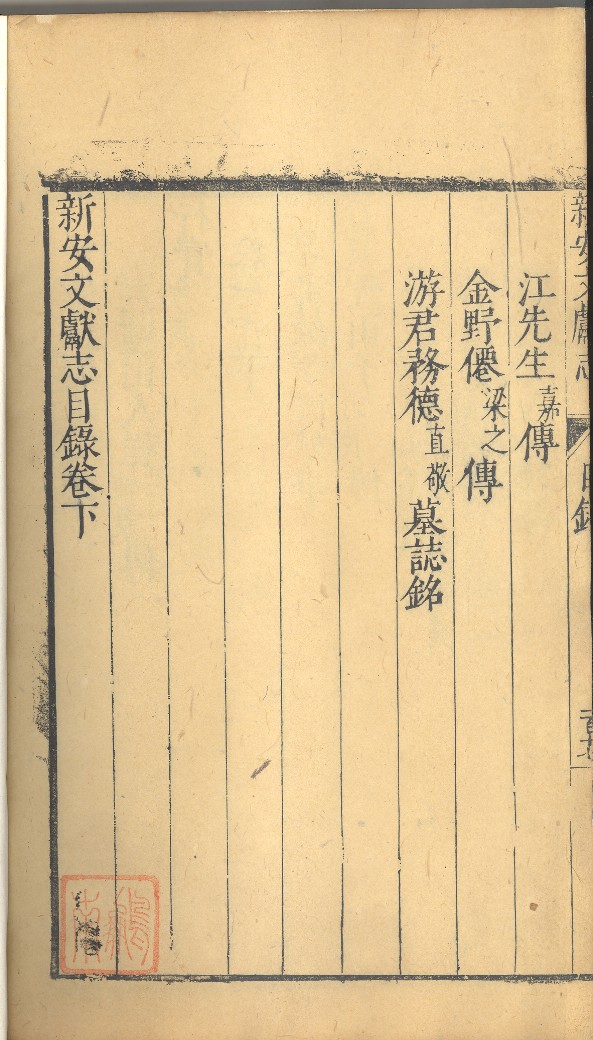 新安文獻志
目錄
江先生嘉傳
金野僊梁之傳
游君務德直敬墓誌銘
新安文獻志目錄卷下